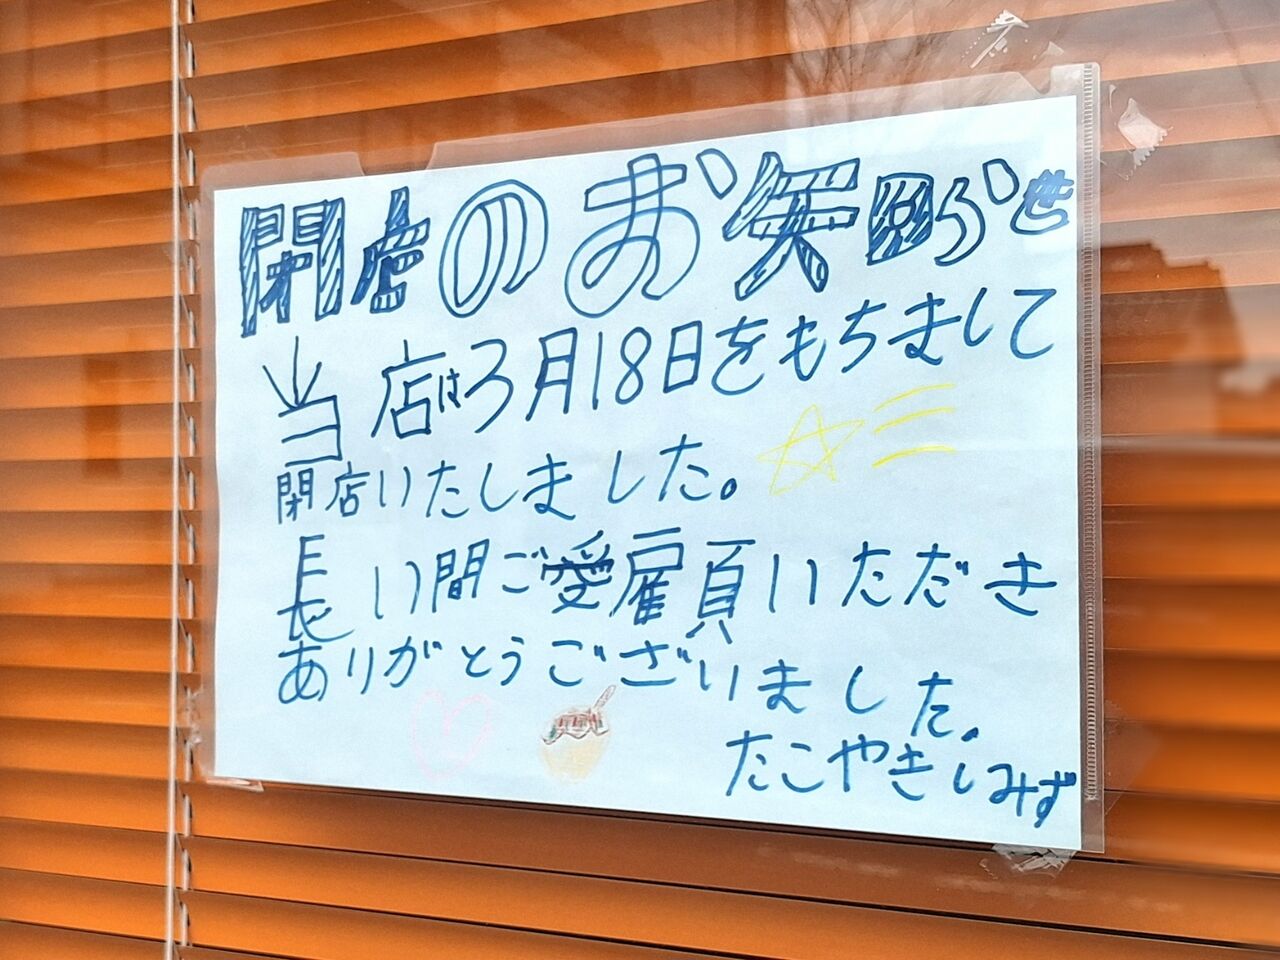 閉店のお知らせ
当店は3月18日をもちまして
閉店いたしました。
長い間ご愛雇頁いただき
ありがとうございました。
たこやきしみず